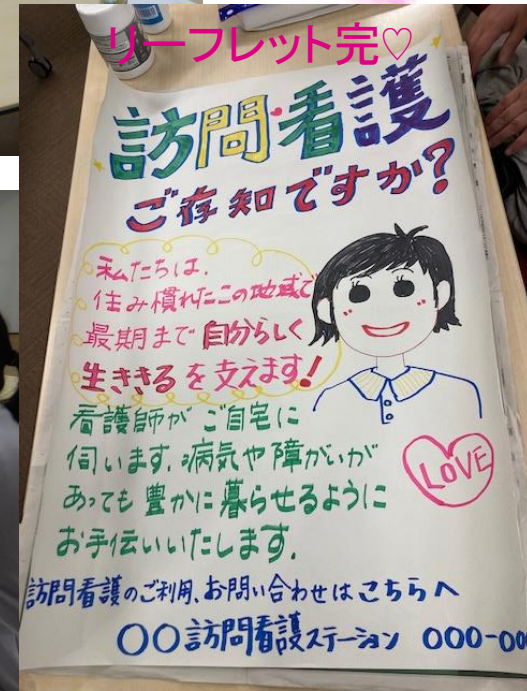 リーフレット完♡
訪問看護
ご存知ですか?
私たちは、
住み慣れたこの地域で
最期まで自分らしく
生ききるを支えます!
看護師がご自宅に
伺います。病気や障がいが
あっても豊かに暮らせるように
お手伝いいたします。
LOVE
訪問看護のご利用、お問い合わせはこちらへ
〇〇訪問看護ステーション 000-000